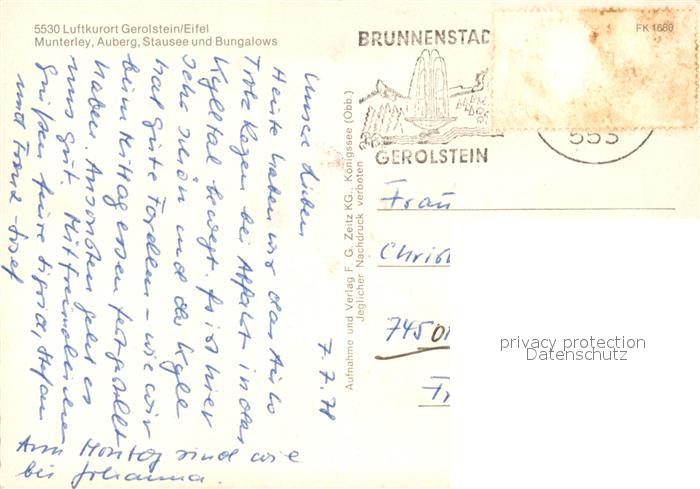 5530 Luftkurort Gerolstein/Eifel
Munterley, Auberg, Stausee und Bungalows
FK 1680
BRUNNENSTAD
GEROLSTEIN
553
Aufnahme und Verlag F. G. Zeitz KG., Königssee (Obb.)
Jeglicher Nachdruck verboten
7.7.78
Unsere Lieben
Heute haben wir das Auto
Trotz Regen bei Abfahrt in das
Kylltal bewegt. Es ist hier
sehr schön und die Kyll
hat gute Forellen - wie wir
beim Mittagessen festgestellt
haben. Ansonsten geht es
uns gut. Mit freundlichen
Grüßen Eure Sigrid, Stefan
und Franz-Josef
Am Montag sind wie
bei Johanna.
Frau
Christ
7450
privacy protection
Datenschutz